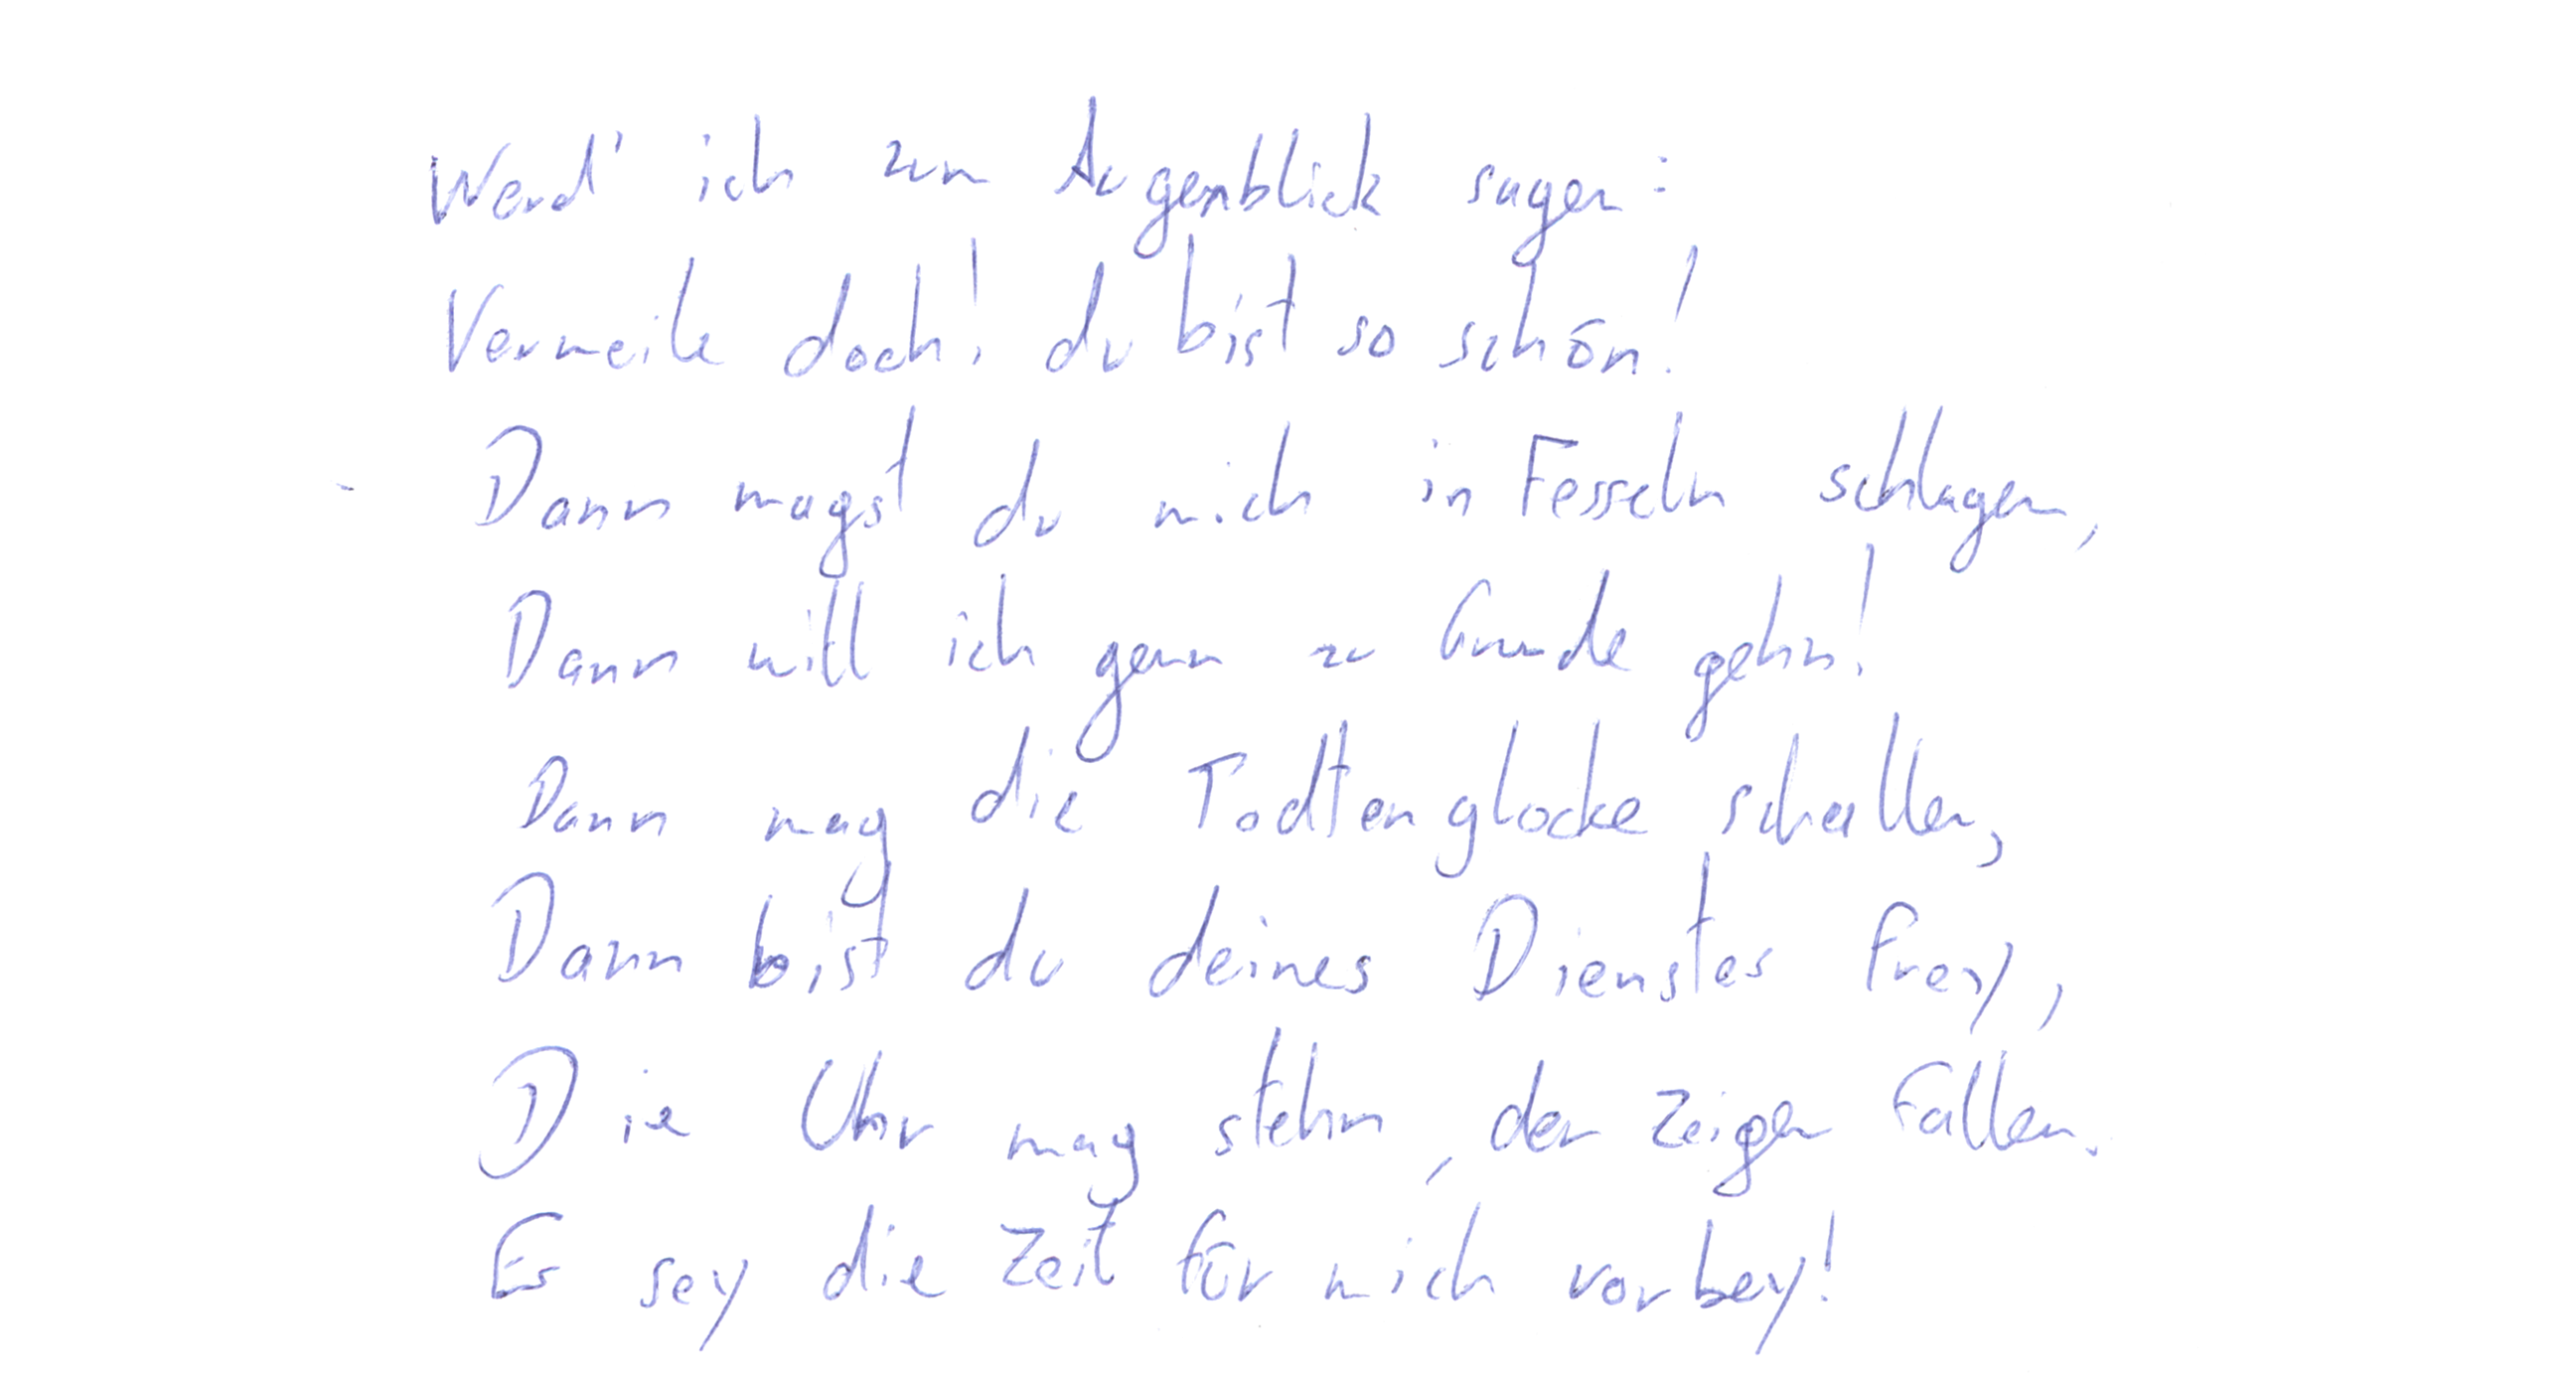 Werd' ich zum Augenblick sagen:
Verweile doch! du bist so schön!
Dann magst du mich in Fesseln schlagen,
Dann will ich gern zu Grunde gehn!
Dann mag die Todtenglocke schallen,
Dann bist du deines Dienstes frey,
Die Uhr mag stehn, der Zeiger fallen.
Es sey die Zeit für mich vorbey!